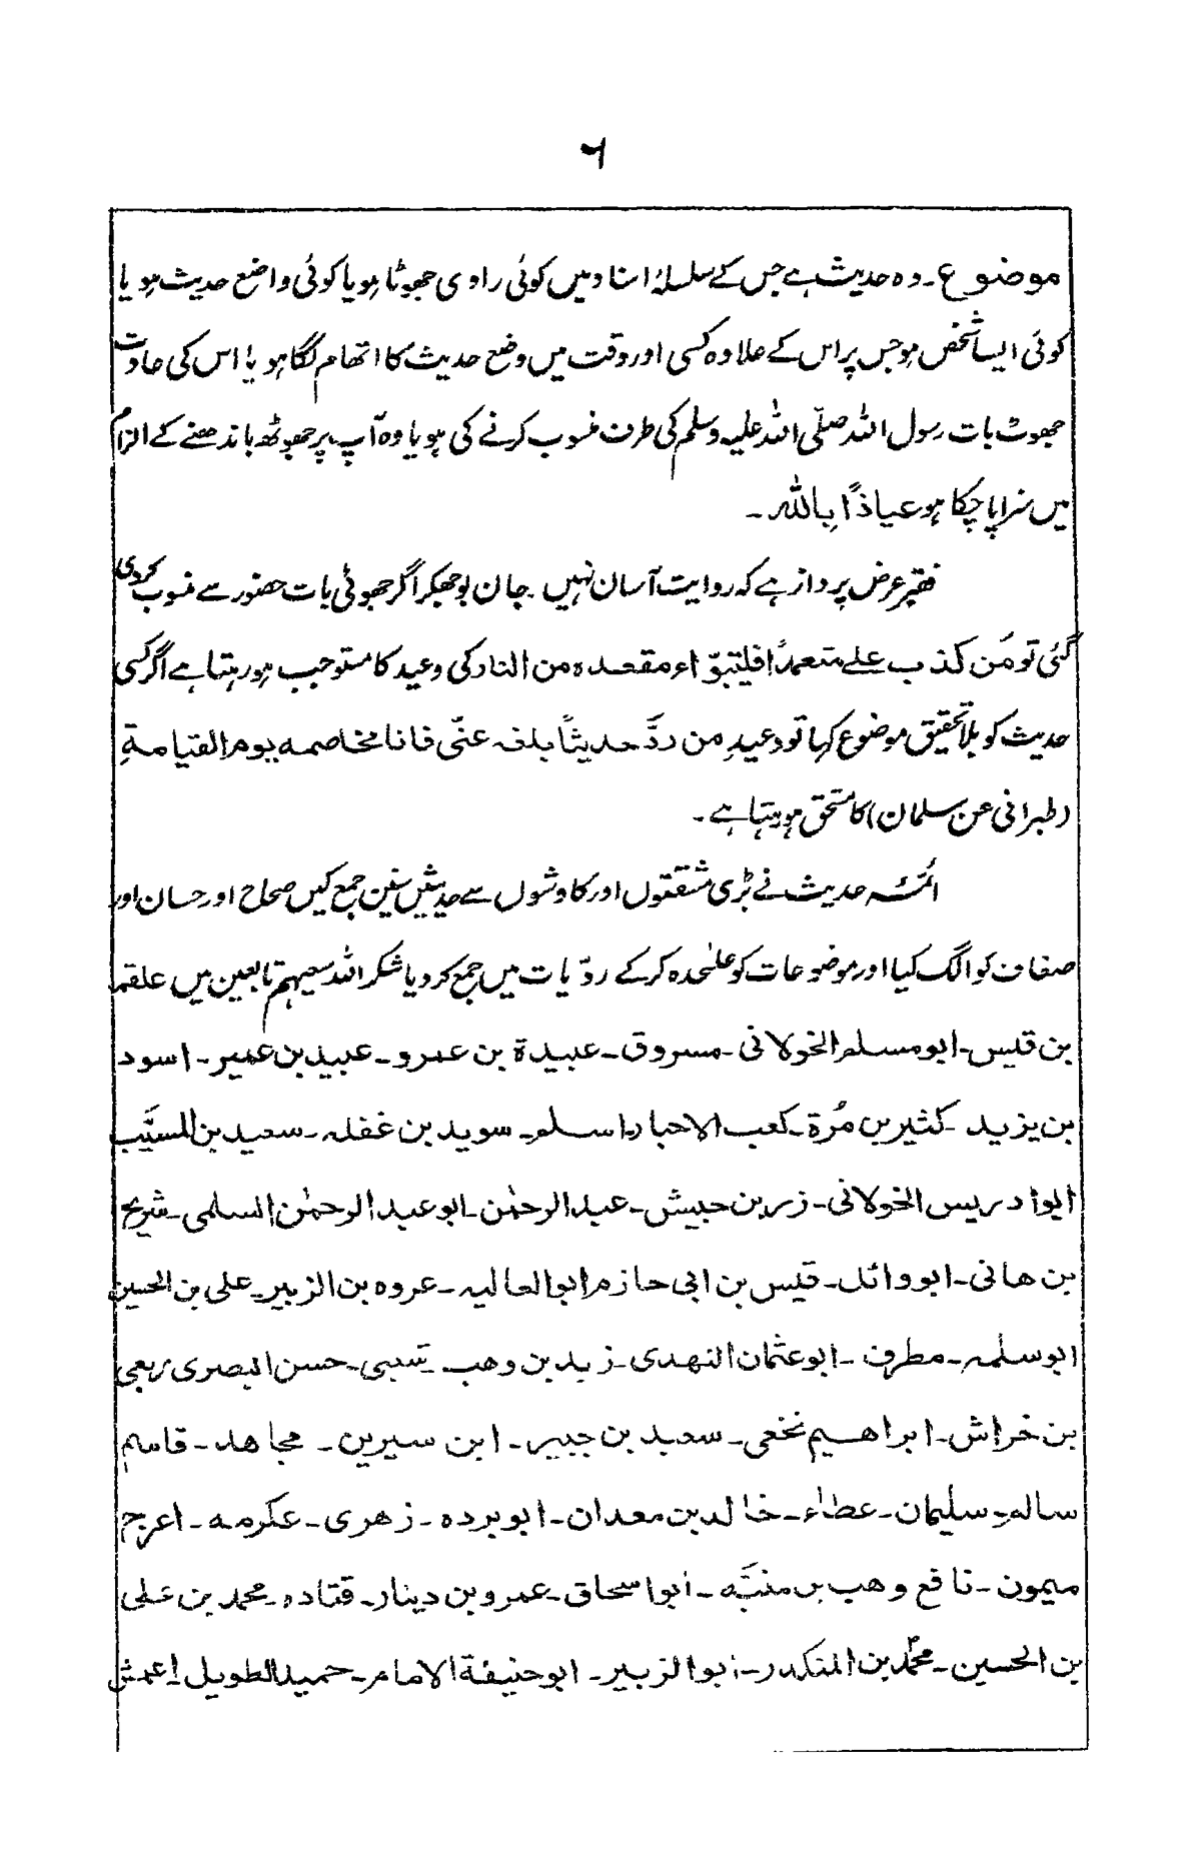 ۶
موضوع۔ وہ حدیث ہے جس کے سلسلۂ اسناد میں کوئی راوی جھوٹا ہو یا کوئی واضع حدیث ہو یا
کوئی ایسا شخص ہو جس پر اس کے علاوہ کسی اور وقت میں وضع حدیث کا اتہام لگا ہو یا اس کی عادت
جھوٹ بات رسول اللہ صلّی اللہ علیہ وسلم کی طرف منسوب کرنے کی ہو یا وہ آپ پر جھوٹھ باندھنے کے الزام
میں سزا پا چکا ہو عیاذًا باللہ ۔
فقیر عرض پرداز ہے کہ روایت آسان نہیں جان بوجھکر اگر جھوٹی بات حضور سے منسوب کردی
گئی تو مَن کذب علے متعمدًا فلیتبوّاء مقعدہ من النار کی وعید کا مستوجب ہو رہتا ہے اگر کسی
حدیث کو بلا تحقیق موضوع کہا تو وعیدِ من ردَّ حدیثًا بلغہ عنّی فانا مخاصمہ یوم القیامۃِ
(طبرانی عن سلمان) کا مستحق ہو رہتا ہے ۔
ائمّہ حدیث نے بڑی مشقتوں اور کاوشوں سے حدیثیں سنیں جمع کیں صحاح اور حسان اور
صفاف کو الگ کیا اور موضوعات کو علٰحدہ کرکے ردّیات میں جمع کر دیا شکر اللہ سعیہم تابعین میں علقمہ
بن قیس۔ ابو مسلم الخولانی۔ مسروق۔ عبیدۃ بن عمرو۔ عبید بن عمیر۔ اسود
بن یزید۔ کثیر بن مُرۃ۔ کعب الاحبار۔ اسلم۔ سوید بن غفلہ۔ سعید بن المسیَّب
ابو ادریس الخولانی۔ زر بن حبیش۔ عبد الرحمٰن۔ ابو عبد الرحمٰن السلمی۔ شریح
بن ھانی۔ ابو وائل۔ قیس بن ابی حازم ابو العالیہ۔ عروہ بن الزبیر۔ علی بن الحسین
ابو سلمہ۔ مطرف۔ ابو عثمان النھدی۔ زید بن وھب۔ شعبی۔ حسن البصری ربعی
بن خراش۔ ابراھیم نخعی۔ سعید بن جبیر۔ ابن سیرین۔ مجاھد۔ قاسم
سالم۔ سلیمان۔ عطاء۔ خالد بن معدان۔ ابو بردہ۔ زھری۔ عکرمہ۔ اعرج
میمون۔ نافع وھب بن منبّہ۔ ابو اسحاق۔ عمرو بن دینار۔ قتادہ۔ محمد بن علی
بن الحسین۔ محمّد بن المنکدر۔ ابو الزبیر۔ ابو حنیفۃ الامام۔ حمید الطویل۔ اعمش